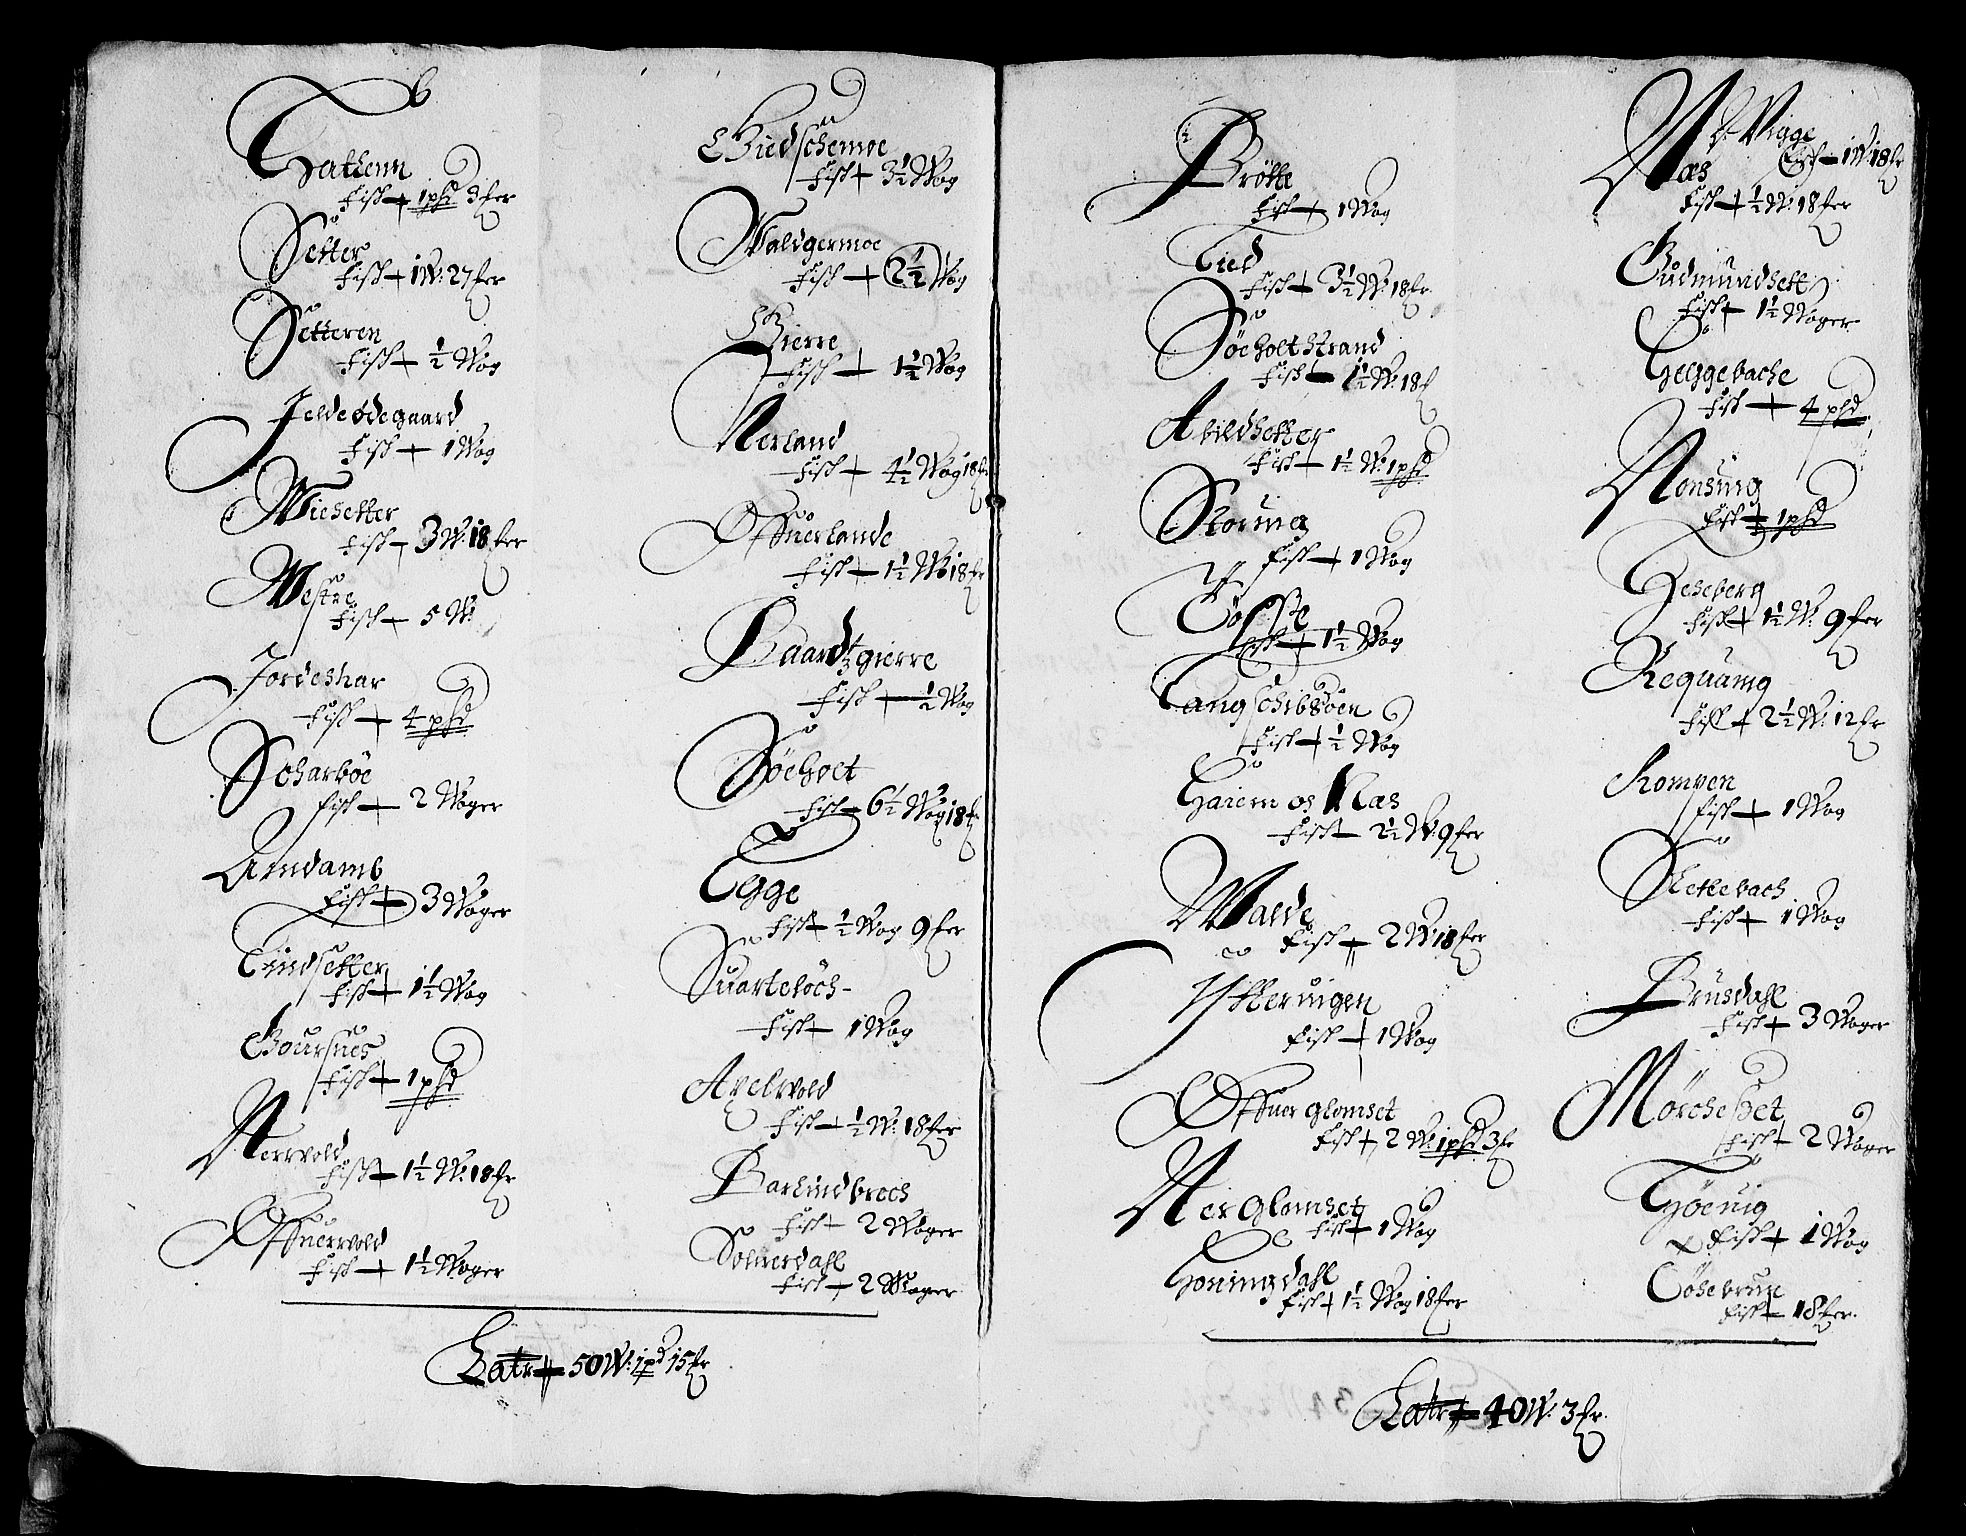 Hattenn
Fisk 1 pꝭd 3 fer
Setter
Fisk 1 W: 27 fer
Setteren
Fisk ½ Wog
Jelde ödegaard
Fisk 1 Wog
Miesetter
Fisk 3 W: 18 fer
Mestre
Fisk 5 W:
Jordeshar
Fisk 4 pꝭd
Scharböe
Fisk 2 Woger
Amdamb
Fisk 3 Woger
Lindsetter
Fisk 1½ Wog
Goursnes
Fisk 1 pꝭd
Nerwold
Fisk 1½ W: 18 fr
Offuerwold
Fisk 1½ Woger
Giedschemoe
Fisk 3½ Wog
Waldgermoe
Fisk 2½ Wog
Gierre
Fisk 1½ Wog
Nerland
Fisk 4½ Wog 18 fr
Offuerlande
Fisk 1½ W 18 fr
Baardtzgierre
Fisk ½ Wog
Söeholt
Fisk 6½ Wog 18 fr
Egge
Fisk ½ Wog 9 fer
Suarteböch
Fisk 1 Wog
Apelwold
Fisk ½ W: 18 fer
Barlindbroch
Fisk 2 Woger
Soluerdahl
Fisk 2 Woger
Latr 50 W: 1 pd 15 fr
Brötte
Fisk 1 Wog
Lied
Fisk 3½ W: 18 fr.
Söeholtstrand
Fisk 1½ W: 18 f
Abildsetter
Fisk 1½ W: 1 pꝭd
Fisk 1 Wog
Fisk 1½ Wog
Langschibsöen
Fisk ½ Wog
Haiem os Næs
Fisk 2½ W: 9 fer
Walde
Fisk 2 W 18 fer
Ytteruigen
Fisk 1 Wog
Offuer glomset
Fisk 2 W: 1 pꝭd 3 fr
Ner Glomset
Fisk 1 Wog
Honingdahl
Fisk 1½ Wog 18 fer
Wigge
Næs Fisk 1 W: 18 fr
Fisk ½ W: 18 fer
Gudmundsett
Fisk 1½ Woger
Helgebache
Fisk 4 pꝭd.
Nonsung
Fisk 1 pꝭd
Heseberg
Fisk 1½ W: 9 fer
Requamg
Fisk 2½ W: 12 fr
Rompen
Fisk 1 Wog
Slettebach
Fisk 1 Wog
Brusdahl
Fisk 3 Woger
Mörcheset
Fisk 2 Woger
Höeuig
Fisk 1 Wog
Lösebrun
Fisk 18 fer.
Latr 40 W: 3 fr.